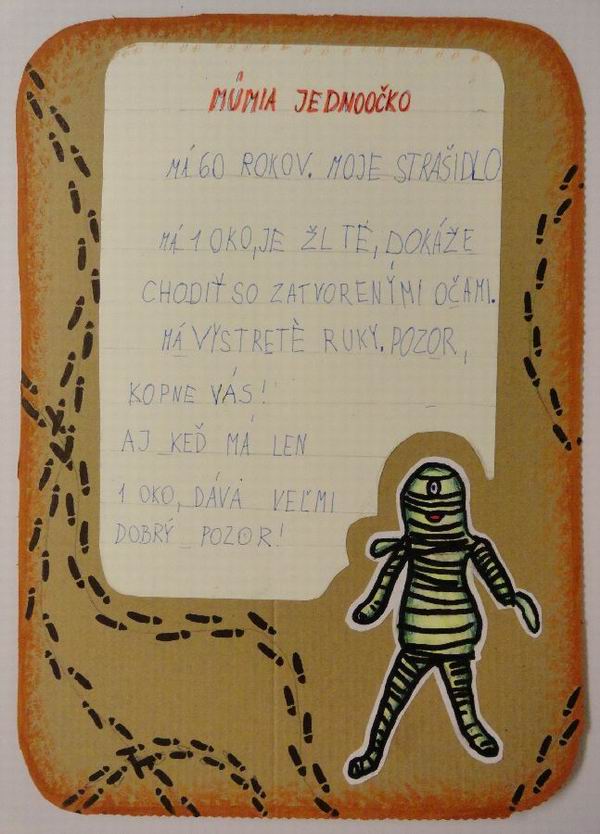 MÚMIA JEDNOOČKO
MÁ 60 ROKOV. MOJE STRAŠIDLO
MÁ 1 OKO, JE ŽLTÉ, DOKÁŽE
CHODIŤ SO ZATVORENÝMI OČAMI.
MÁ VYSTRETÉ RUKY. POZOR,
KOPNE VÁS!
AJ KEĎ MÁ LEN
1 OKO, DÁVA VEĽMI
DOBRÝ POZOR!